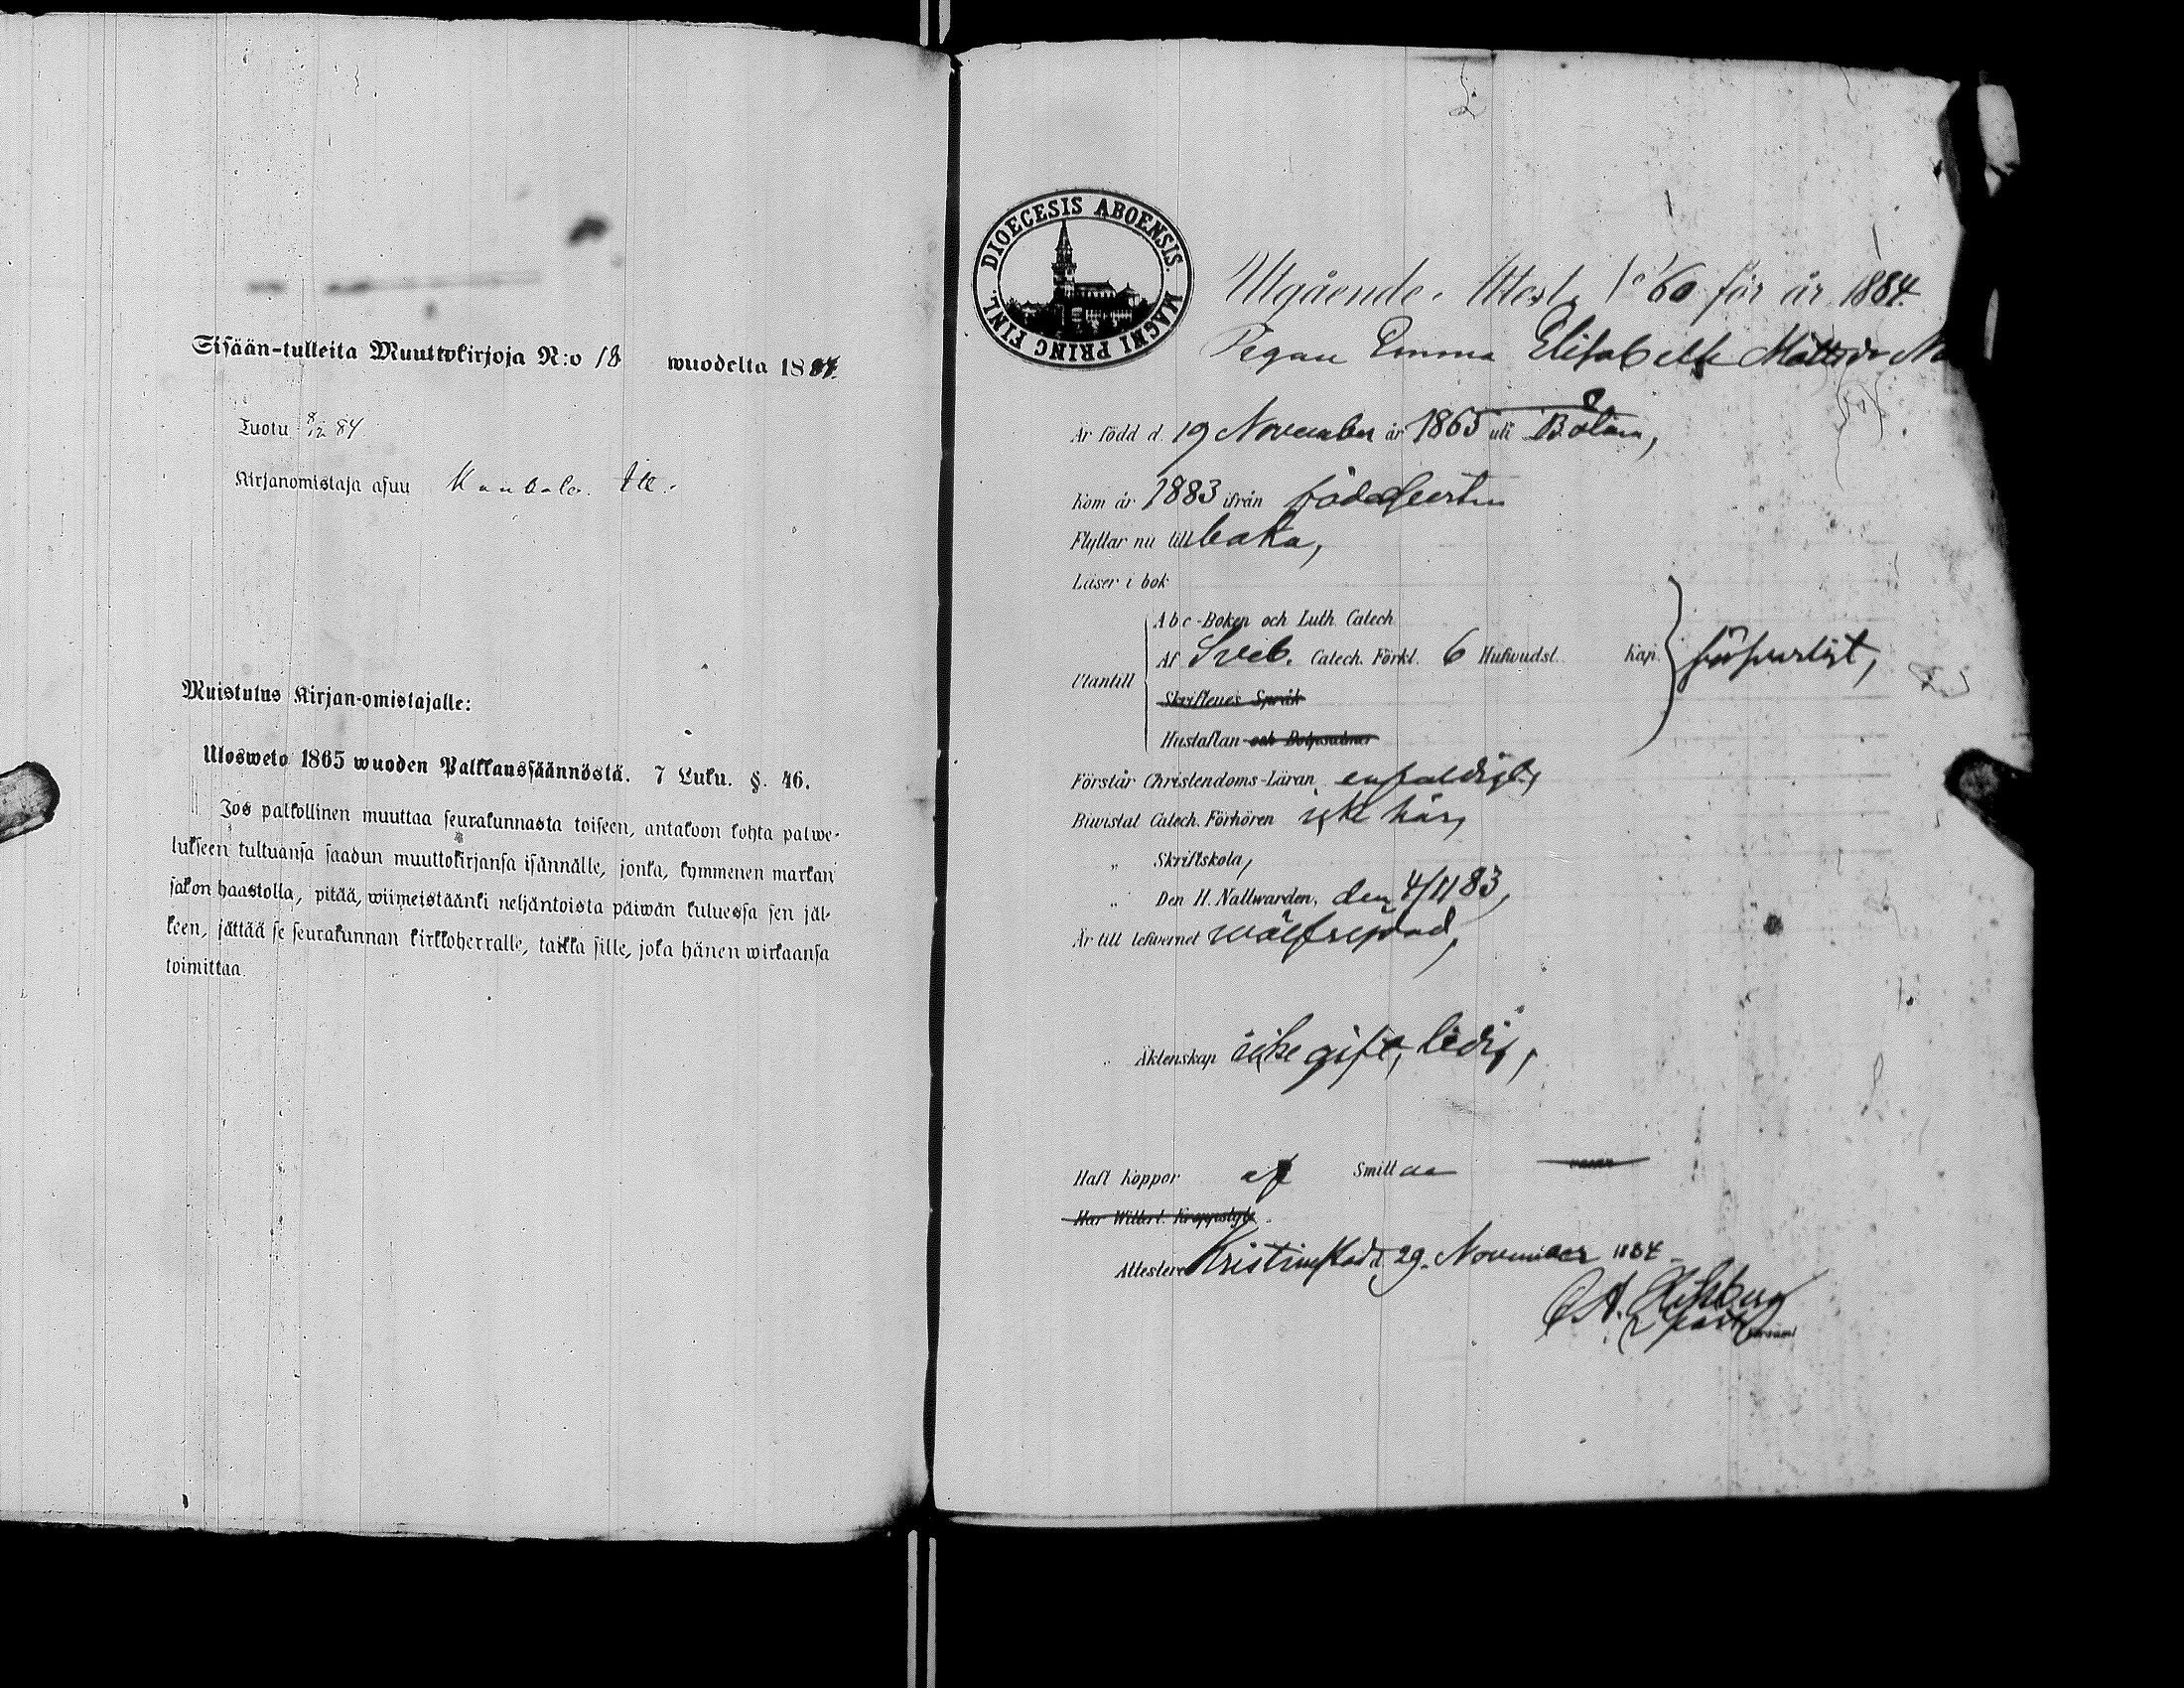 Sisään-tulleita Muuttokirjoja N:o 18 wuodelta 1884.
Tuotu 8/12 84.
Kirjanomistaja asuu
Muistutus Kirjan-omistajalle:
Ulosweto 1865 wuoden Palkkaussäännöstä. 7 Luku. §. 46.
Jos palkollinen muuttaa seurakunnasta toiseen, antakoon kohta palwe-
lukseen tultuansa saadun muuttokirjansa isännälle, jonka, kymmenen markan
sakon haastolla, pitää, wiimeistäänki neljäntoista päiwän kuluessa sen jäl-
keen, jättää se seurakunnan kirkkoherralle, taikka sille, joka hänen wirkaansa
toimittaa.
DIOECESIS ABOENSIS. MAGNI PRINC FINL.
Utgående Attest N:o 60 för år 1884.
Pigan Emma Elisabeth Mattsdr
Är född d. 19 November år 1865 uti Bötom,
Kom år 1883 ifrån födelseorten
Flyttar nu tillbaka,
Läser i bok
Abc-Boken och Luth. Catech.
Utantill Af Sveb. Catech. Förkl. 6 Hufwudst. Kap. försvarligt,
Skriftenes Språk
Hustaflan och Botpsalmer
Förstår Christendoms-Läran enfaldigt,
Biwistat Catech. Förhören icke här,
" Skriftskola,
" Den H. Nattwarden, den 4/11 83,
Är till lefwernet wälfrejdad,
" Äktenskap icke gift, ledig,
Haft Koppor af Smittaa
Har Wittert. Kroppslyte
Attesterar Kristinestad d. 29 November 1884